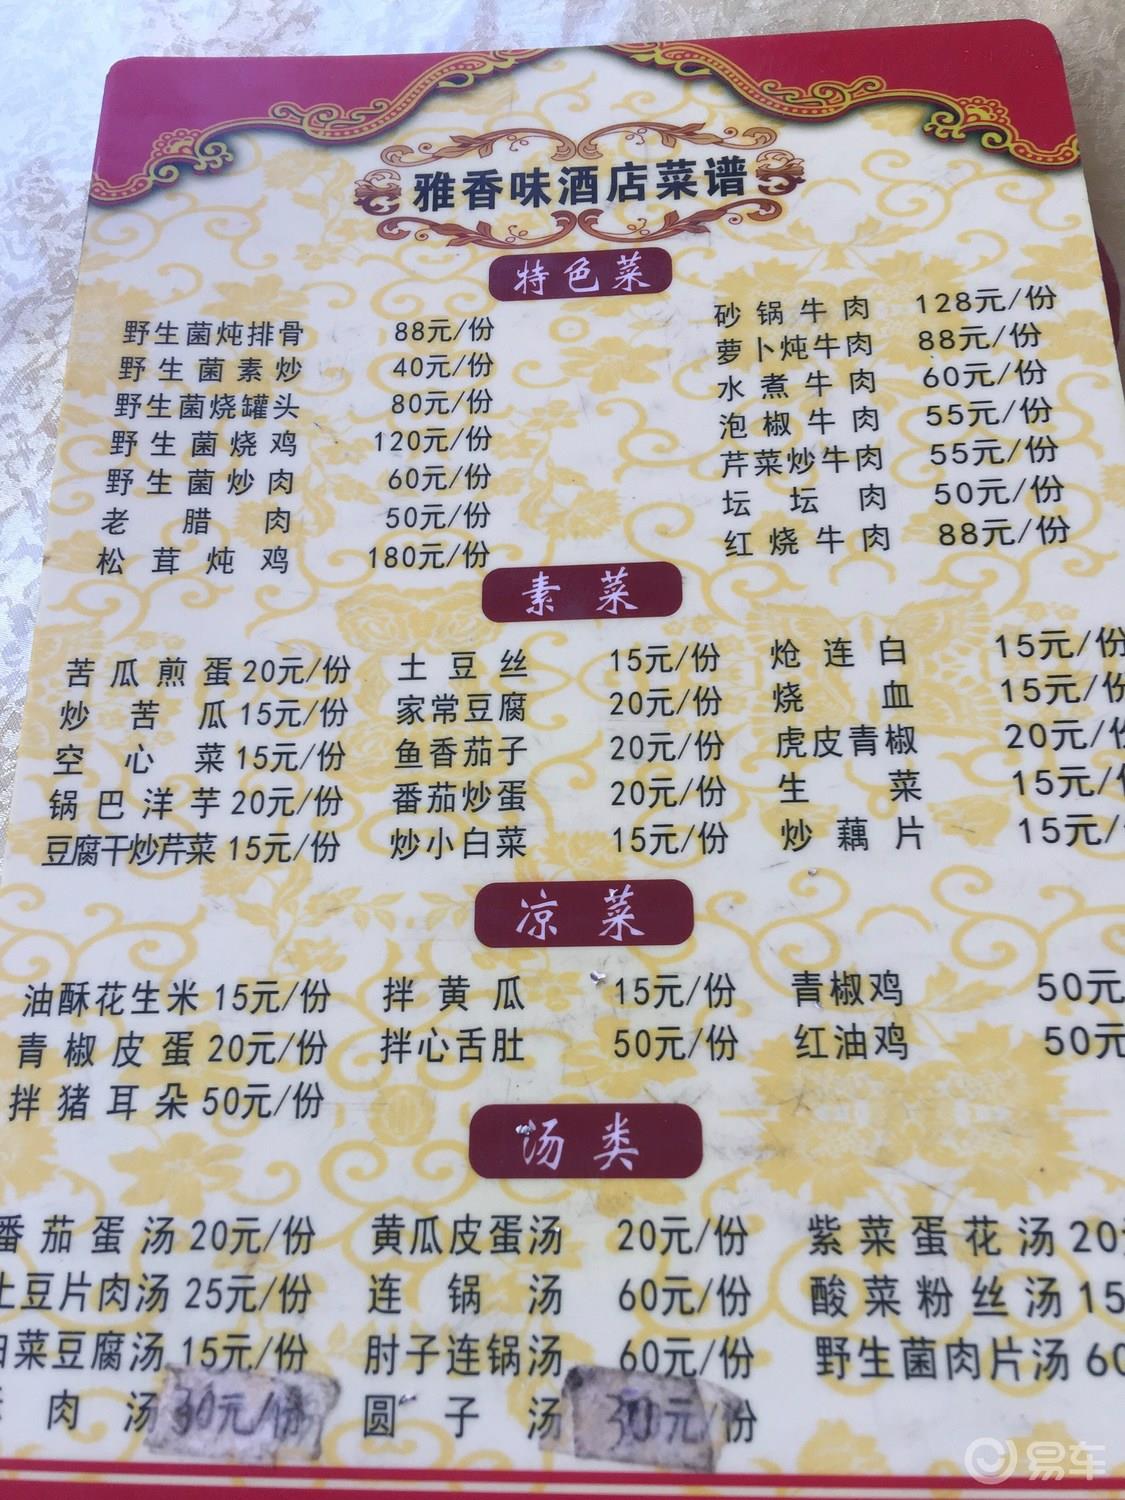 雅香味酒店菜谱
特色菜
野生菌炖排骨 88元/份
野生菌素炒 40元/份
野生菌烧罐头 80元/份
野生菌烧鸡 120元/份
野生菌炒肉 60元/份
老腊肉 50元/份
松茸炖鸡 180元/份
砂锅牛肉 128元/份
萝卜炖牛肉 88元/份
水煮牛肉 60元/份
泡椒牛肉 55元/份
芹菜炒牛肉 55元/份
坛坛肉 50元/份
红烧牛肉 88元/份
素菜
苦瓜煎蛋 20元/份
炒苦瓜 15元/份
空心菜 15元/份
锅巴洋芋 20元/份
豆腐干炒芹菜 15元/份
土豆丝 15元/份
家常豆腐 20元/份
鱼香茄子 20元/份
番茄炒蛋 20元/份
炒小白菜 15元/份
炝连白 15元/份
烧血 15元/份
虎皮青椒 20元/份
生菜 15元/份
炒藕片 15元/
凉菜
油酥花生米 15元/份
青椒皮蛋 20元/份
拌猪耳朵 50元/份
拌黄瓜 15元/份
拌心舌肚 50元/份
青椒鸡 50元
红油鸡 50元
汤类
番茄蛋汤 20元/份
土豆片肉汤 25元/份
白菜豆腐汤 15元/份
肉汤 30元/份
黄瓜皮蛋汤 20元/份
连锅汤 60元/份
肘子连锅汤 60元/份
圆子汤 30元/份
紫菜蛋花汤 20
酸菜粉丝汤 15
野生菌肉片汤 60
易车